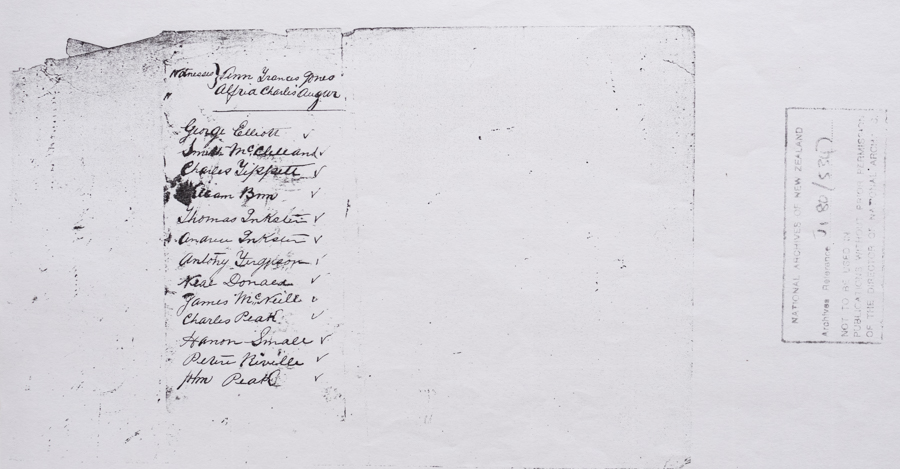 Witnesses } Ann Frances Jones
Alfria Charles Augur
George Elliott ✓
Smith McClelland ✓
Charles Tippett ✓
William Bnn ✓
Thomas Inkster ✓
Andrew Inkster ✓
Antony Ferguson ✓
Neal Donald ✓
James McNeill ✓
Charles Peak ✓
Hanon Small ✓
Peter Niville ✓
John Peak ✓
NATIONAL ARCHIVES OF NEW ZEALAND
Archives Reference
NOT TO BE USED IN
PUBLICATIONS WITHOUT PRIOR PERMISSION
OF THE DIRECTOR OF NATIONAL ARCHIVES